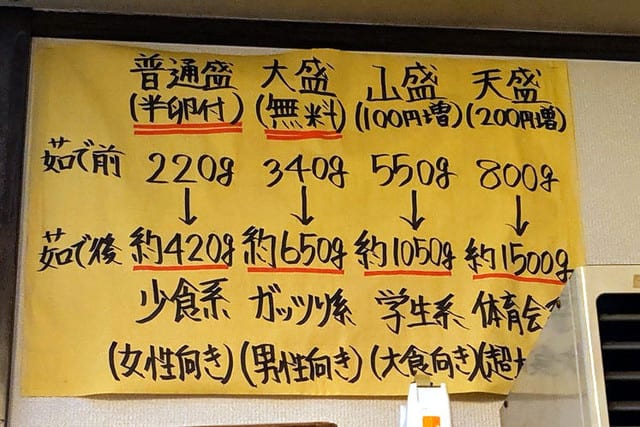 普通盛 大盛 山盛 天盛
(半卵付) (無料) (100円増) (200円増)
茹で前 220g 340g 550g 800g
↓ ↓ ↓ ↓
茹で後 約420g 約650g 約1050g 約1500g
少食系 ガッツリ系 学生系 体育会
(女性向き) (男性向き) (大食向き) (超